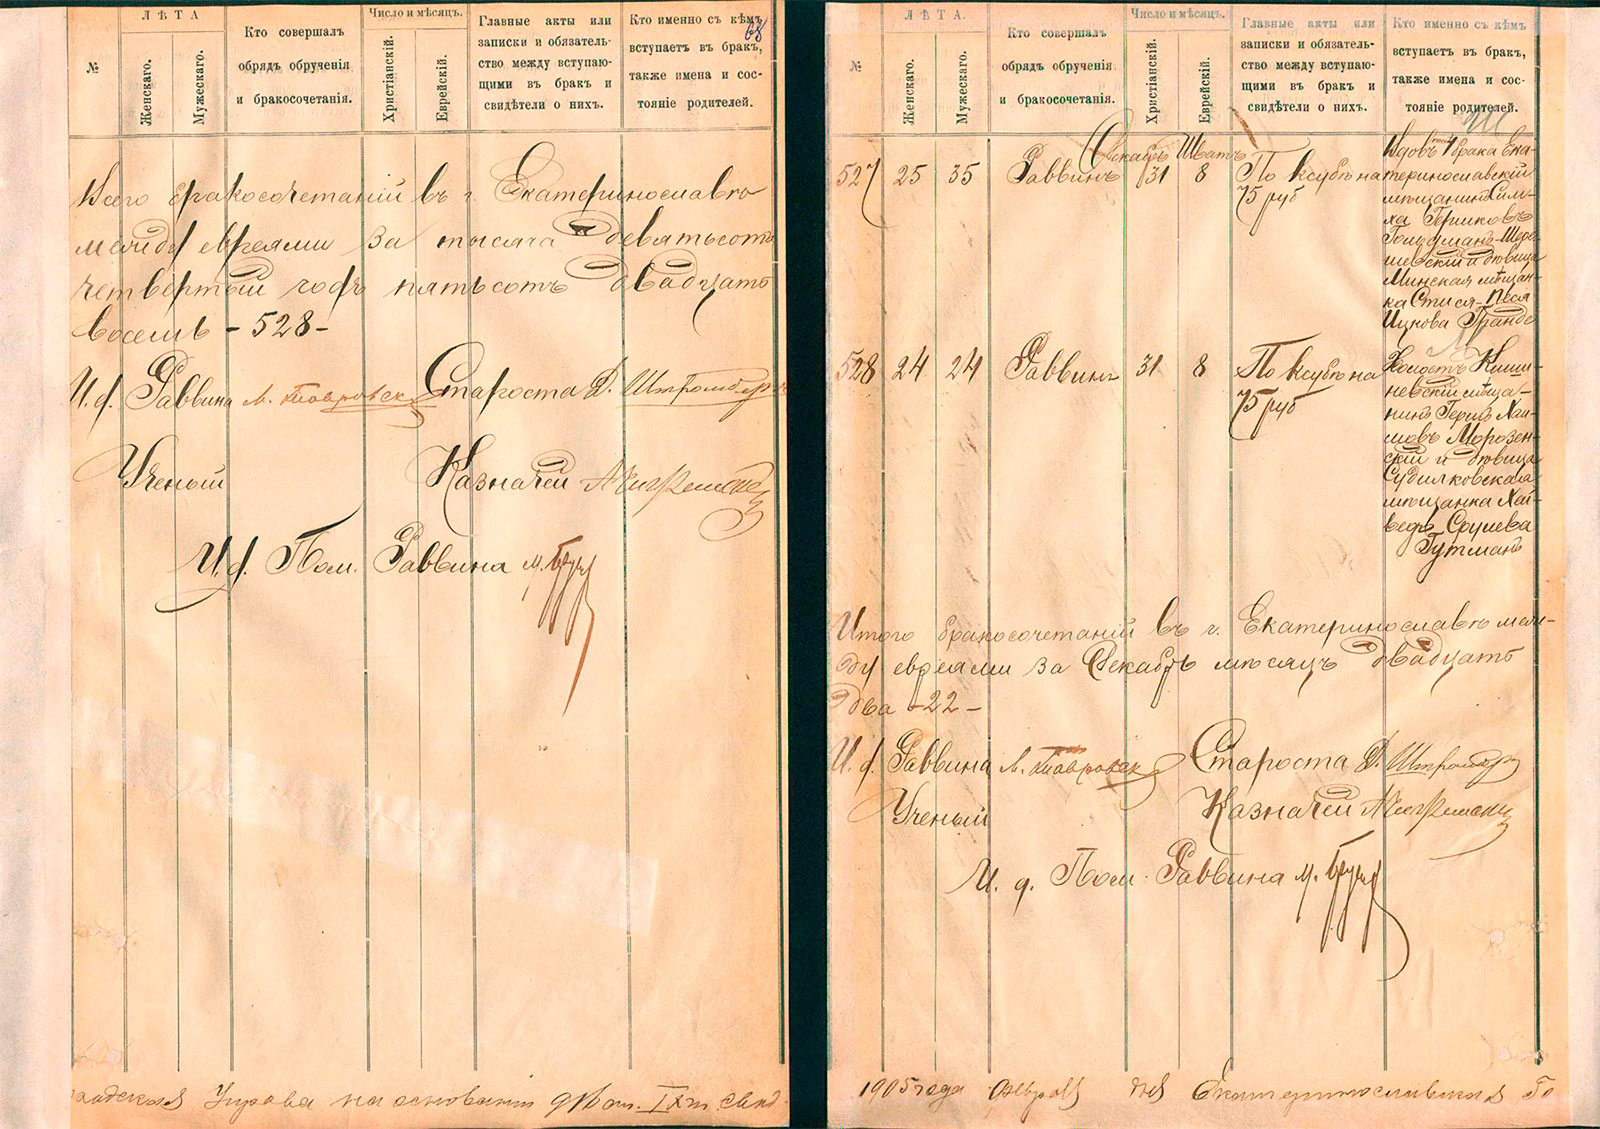 ЛѢТА
№
Женскаго.
Мужескаго.
Кто совершалъ
обрядъ обрученія
и бракосочетанія.
Число и мѣсяцъ.
Христіанскій.
Еврейскій.
Главные акты или
записки и обязатель-
ство между вступаю-
щими въ бракъ и
свидѣтели о нихъ.
Кто именно съ кѣмъ
вступаетъ въ бракъ,
также имена и сос-
тояніе родителей.
68
Всего бракосочетаній въ г. Екатеринославѣ
между евреями за тысяча девятьсотъ
четвертый годъ пятьсотъ двадцать
восемь - 528 -
И. д. Раввина Староста
Ученый Казначей
И. д. Пом. Раввина
Управа на основаніи IX т.
ЛѢТА.
№
Женскаго.
Мужескаго.
Кто совершалъ
обрядъ обрученія
и бракосочетанія.
Число и мѣсяцъ.
Христіанскій.
Еврейскій.
Главные акты или
записки и обязатель-
ство между вступаю-
щими въ бракъ и
свидѣтели о нихъ.
Кто именно съ кѣмъ
вступаетъ въ бракъ,
также имена и сос-
тояніе родителей.
Декабрь Шватъ
527 25 35 Раввинъ 31 8
По ксубѣ на
75 руб
брака Ека-
теринославскій
мѣщанинъ Сим-
ха Гершковъ
Гольдманъ-
и дѣвица
Минская мѣщан-
ка Стися-Песя
Ицкова
528 24 24 Раввинъ 31 8
По ксубѣ на
75 руб
Холостъ Киши-
невскій мѣща-
нинъ Гершъ Хаи-
мовъ Морозен-
скій и дѣвица
Судилковская
мѣщанка Хая-
Срулева
Гутманъ
Итого бракосочетаній въ г. Екатеринославѣ меж-
ду евреями за Декабрь мѣсяцъ двадцать
два - 22 -
И. д. Раввина Староста
Ученый Казначей
И. д. Пом. Раввина
1905 года Февраля дня Екатеринославская Го